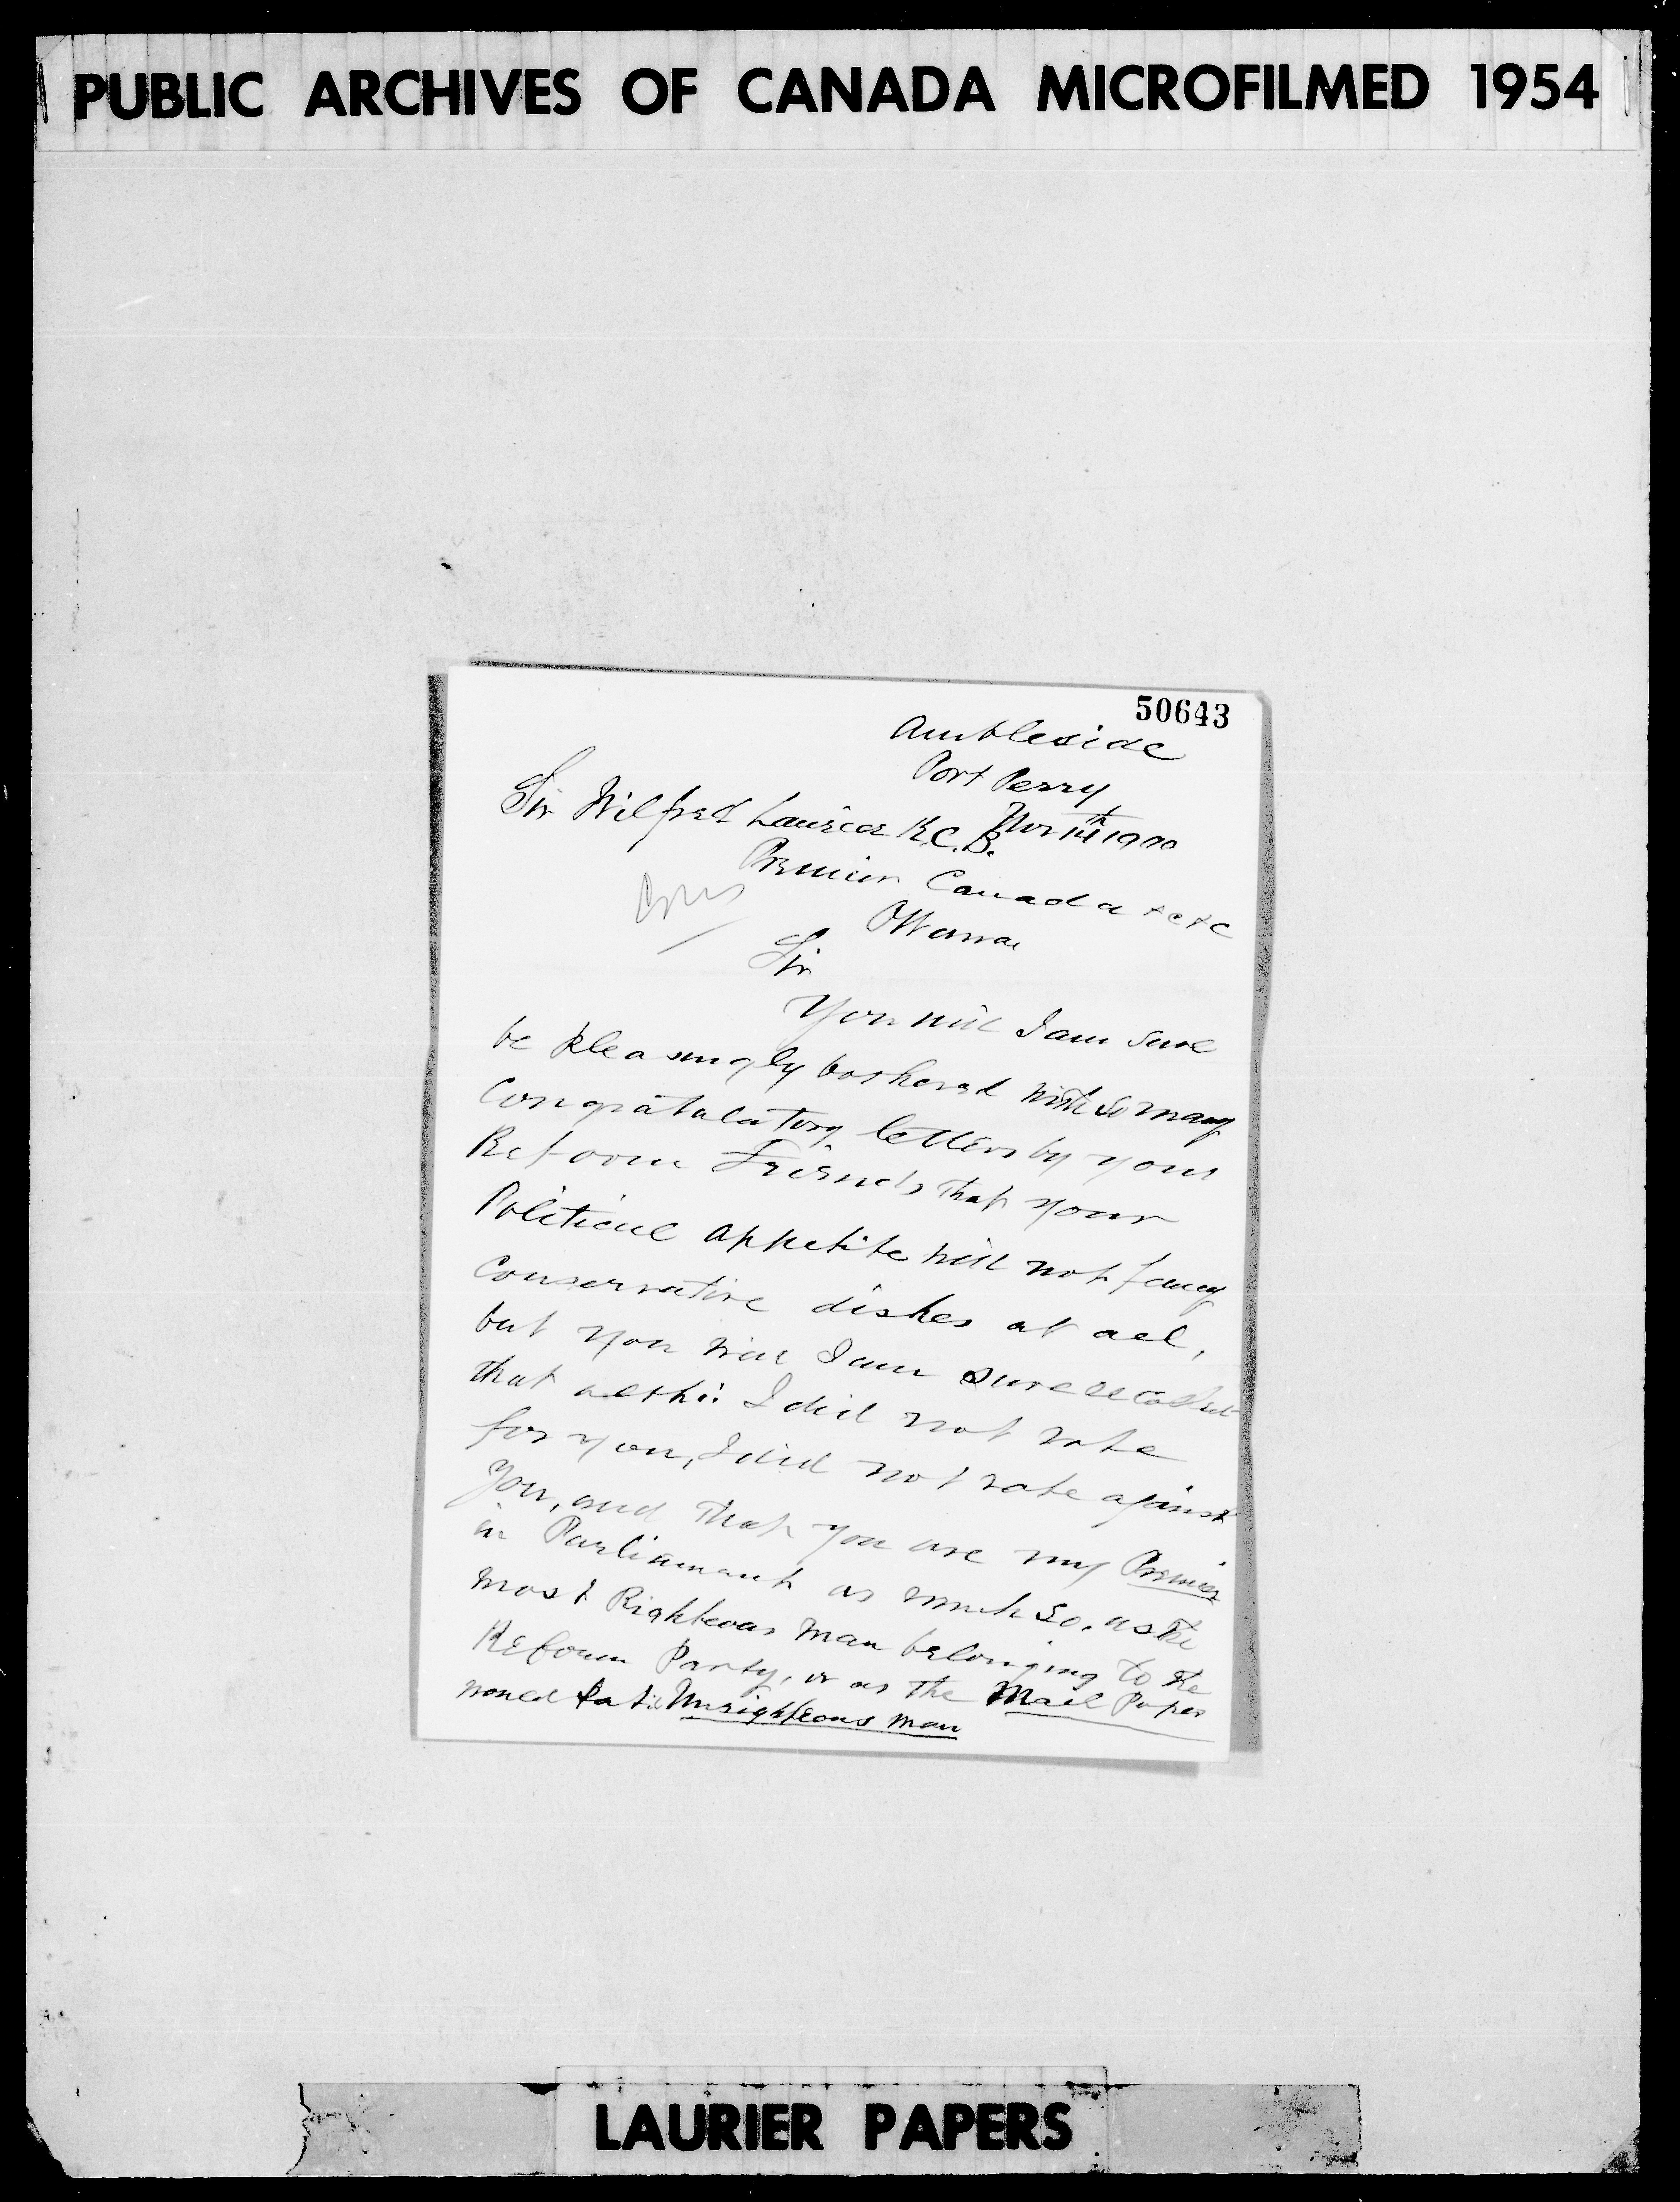 PUBLIC ARCHIVES OF CANADA MICROFILMED 1954
50643
Ambleside
Port Perry
Nov 14th 1900
Sir Wilfred Laurier K.C.B.
Premier Canada &c &c
Ottawa
Sir
You will I am sure
be pleasingly bothered with so many
Congratulatory letters by your
Reform Friends that your
Political appetite will not fancy
Conservative dishes at all,
but you will I am sure
that altho: I did not vote
for you, I did not vote against
You, and that you are my Premier
in Parliament as much so, as the
most Righteous man belonging to the
Reform Party, or as the Mail Paper
would Unrighteous man
LAURIER PAPERS